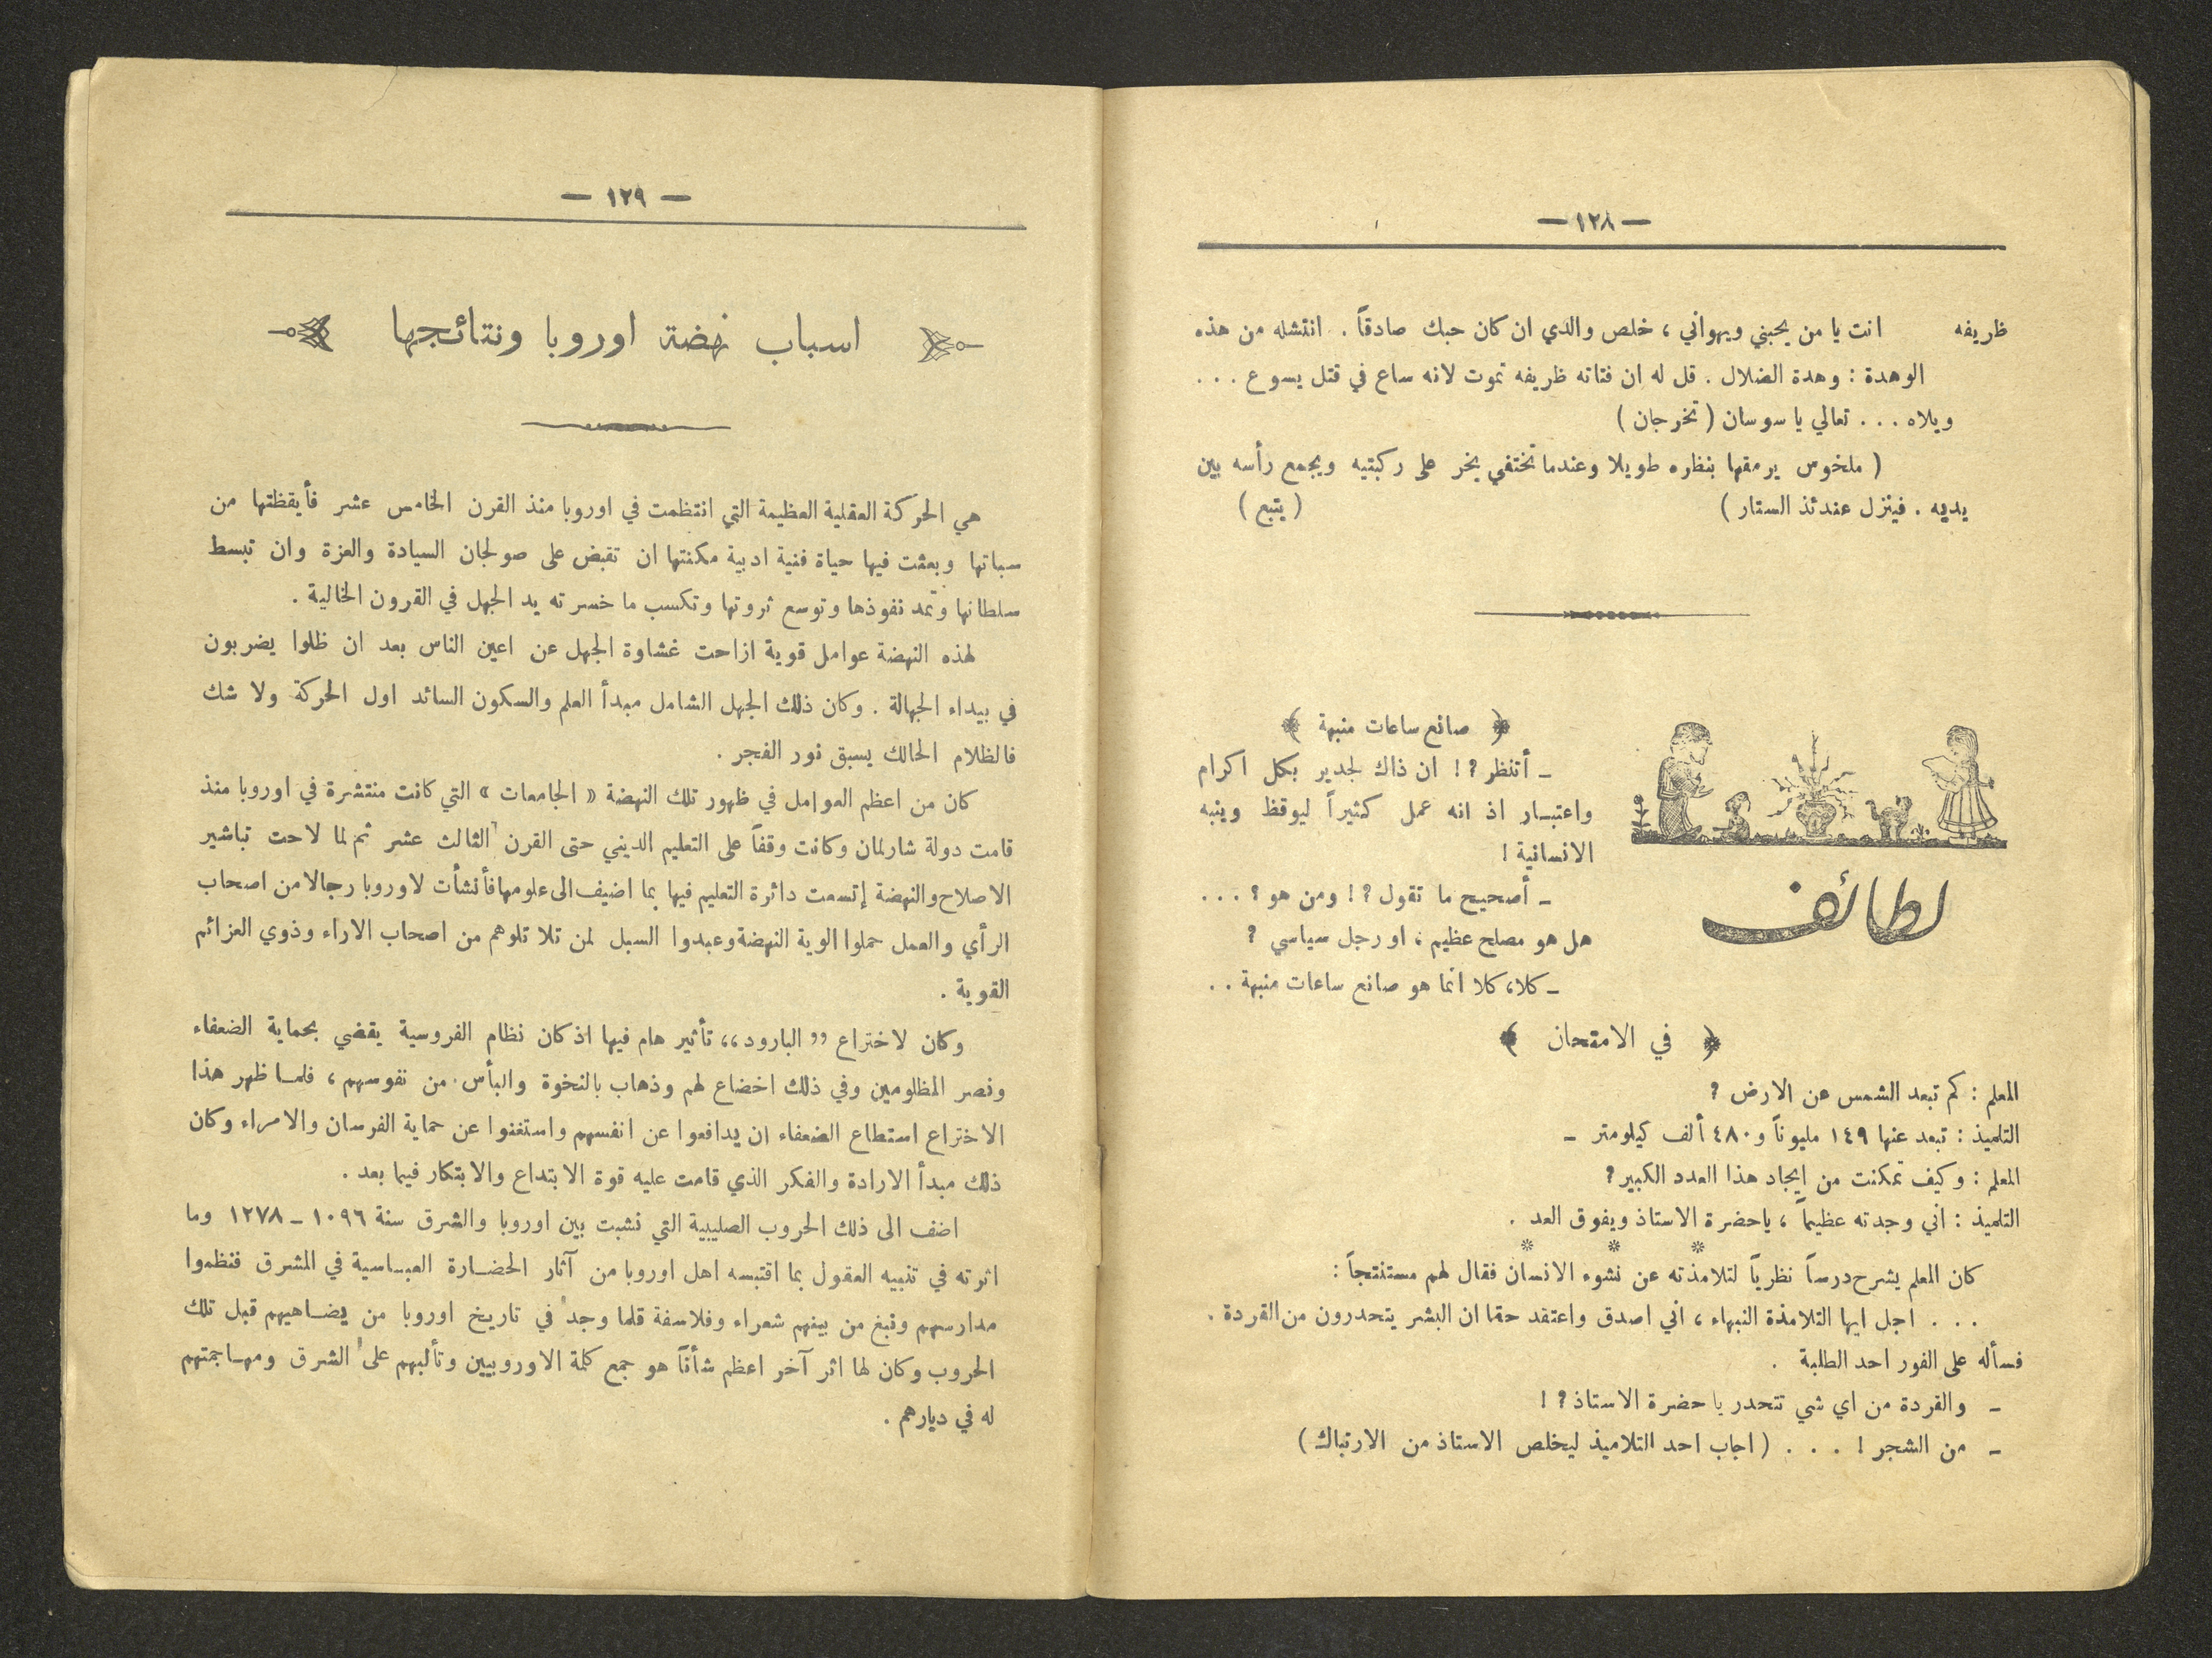 — ١٢٨ —
ظريفه انت يا من يحبني ويهواني ، خلص والدي ان كان حبك صادقاً . انتشله من هذه
الوهدة : وهدة الضلال . قل له ان فتاته ظريفه تموت لانه ساع في قتل يسوع . . .
ويلاه . . . تعالي يا سوسان ( تخرجان )
( ملخوس يرمقها بنظره طويلا وعندما تختفي يخر على ركبتيه ويجمع رأسه بين
يديه . فينزل عندئذ الستار ) ( يتبع )
لطائف
﴿ صانع ساعات منبهة ﴾
ـ أتنظر ؟ ! ان ذاك لجدير بكل اكرام
واعتبار اذ انه عمل كثيراً ليوقظ وينبه
الانسانية !
ـ أصحيح ما تقول ؟ ! ومن هو ؟ . . .
هل هو مصلح عظيم ، او رجل سياسي ؟
ـ كلا، كلا انما هو صانع ساعات منبهة . .
﴿ في الامتحان ﴾
المعلم : كم تبعد الشمس عن الارض ؟
التلميذ : تبعد عنها ١٤٩ مليوناً و٤٨٠ ألف كيلومتر ـ
المعلم : وكيف تمكنت من ايجاد هذا العدد الكبير ؟
التلميذ : اني وجدته عظيماً ، ياحضرة الاستاذ ويفوق العد .
* * *
كان المعلم يشرح درساً نظرياً لتلامذته عن نشوء الانسان فقال لهم مستنتجاً :
. . . اجل ايها التلامذة النبهاء ، اني اصدق واعتقد حقا ان البشر يتحدرون من القردة .
فسأله على الفور احد الطلبة .
ـ والقردة من اي شي تتحدر يا حضرة الاستاذ ؟ !
ـ من الشجر ! . . . ( اجاب احد التلاميذ ليخلص الاستاذ من الارتباك )
— ١٢٩ —
اسباب نهضة اوروبا ونتائجها
هي الحركة العقلية العظيمة التي انتظمت في اوروبا منذ القرن الخامس عشر فأيقظتها من
سباتها وبعثت فيها حياة فنية ادبية مكنتها ان تقبض على صولجان السيادة والعزة وان تبسط
سلطانها وتمد نفوذها وتوسع ثروتها وتكسب ما خسرته يد الجهل في القرون الخالية .
لهذه النهضة عوامل قوية ازاحت غشاوة الجهل عن اعين الناس بعد ان ظلوا يضربون
في بيداء الجهالة . وكان ذلك الجهل الشامل مبدأ العلم والسكون السائد اول الحركة ولا شك
فالظلام الحالك يسبق نور الفجر .
كان من اعظم العوامل في ظهور تلك النهضة « الجامعات » التي كانت منتشرة في اوروبا منذ
قامت دولة شارلمان وكانت وقفاً على التعليم الديني حتى القرن الثالث عشر ثم لما لاحت تباشير
الاصلاح والنهضة إتسعت دائرة التعليم فيها بما اضيف الى علومها فأنشأت لاوروبا رجالا من اصحاب
الرأي والعمل حملوا الوية النهضة وعبدوا السبل لمن تلا تلوهم من اصحاب الاراء وذوي العزائم
القوية .
وكان لاختراع ,, البارود ،، تأثير هام فيها اذ كان نظام الفروسية يقضي بحماية الضعفاء
ونصر المظلومين وفي ذلك اخضاع لهم وذهاب بالنخوة والبأس من نفوسهم ، فلما ظهر هذا
الاختراع استطاع الضعفاء ان يدافعوا عن انفسهم واستغنوا عن حماية الفرسان والامراء وكان
ذلك مبدأ الارادة والفكر الذي قامت عليه قوة الابتداع والابتكار فيما بعد .
اضف الى ذلك الحروب الصليبية التي نشبت بين اوروبا والشرق سنة ١٠٩٦ ـ ١٢٧٨ وما
اثرته في تنبيه العقول بما اقتبسه اهل اوروبا من آثار الحضارة العباسية في المشرق فنظموا
مدارسهم ونبغ من بينهم شعراء وفلاسفة قلما وجد في تاريخ اوروبا من يضاهيهم قبل تلك
الحروب وكان لها اثر آخر اعظم شأناً هو جمع كلمة الاوروبيين وتألبهم على الشرق ومهاجمتهم
له في ديارهم .